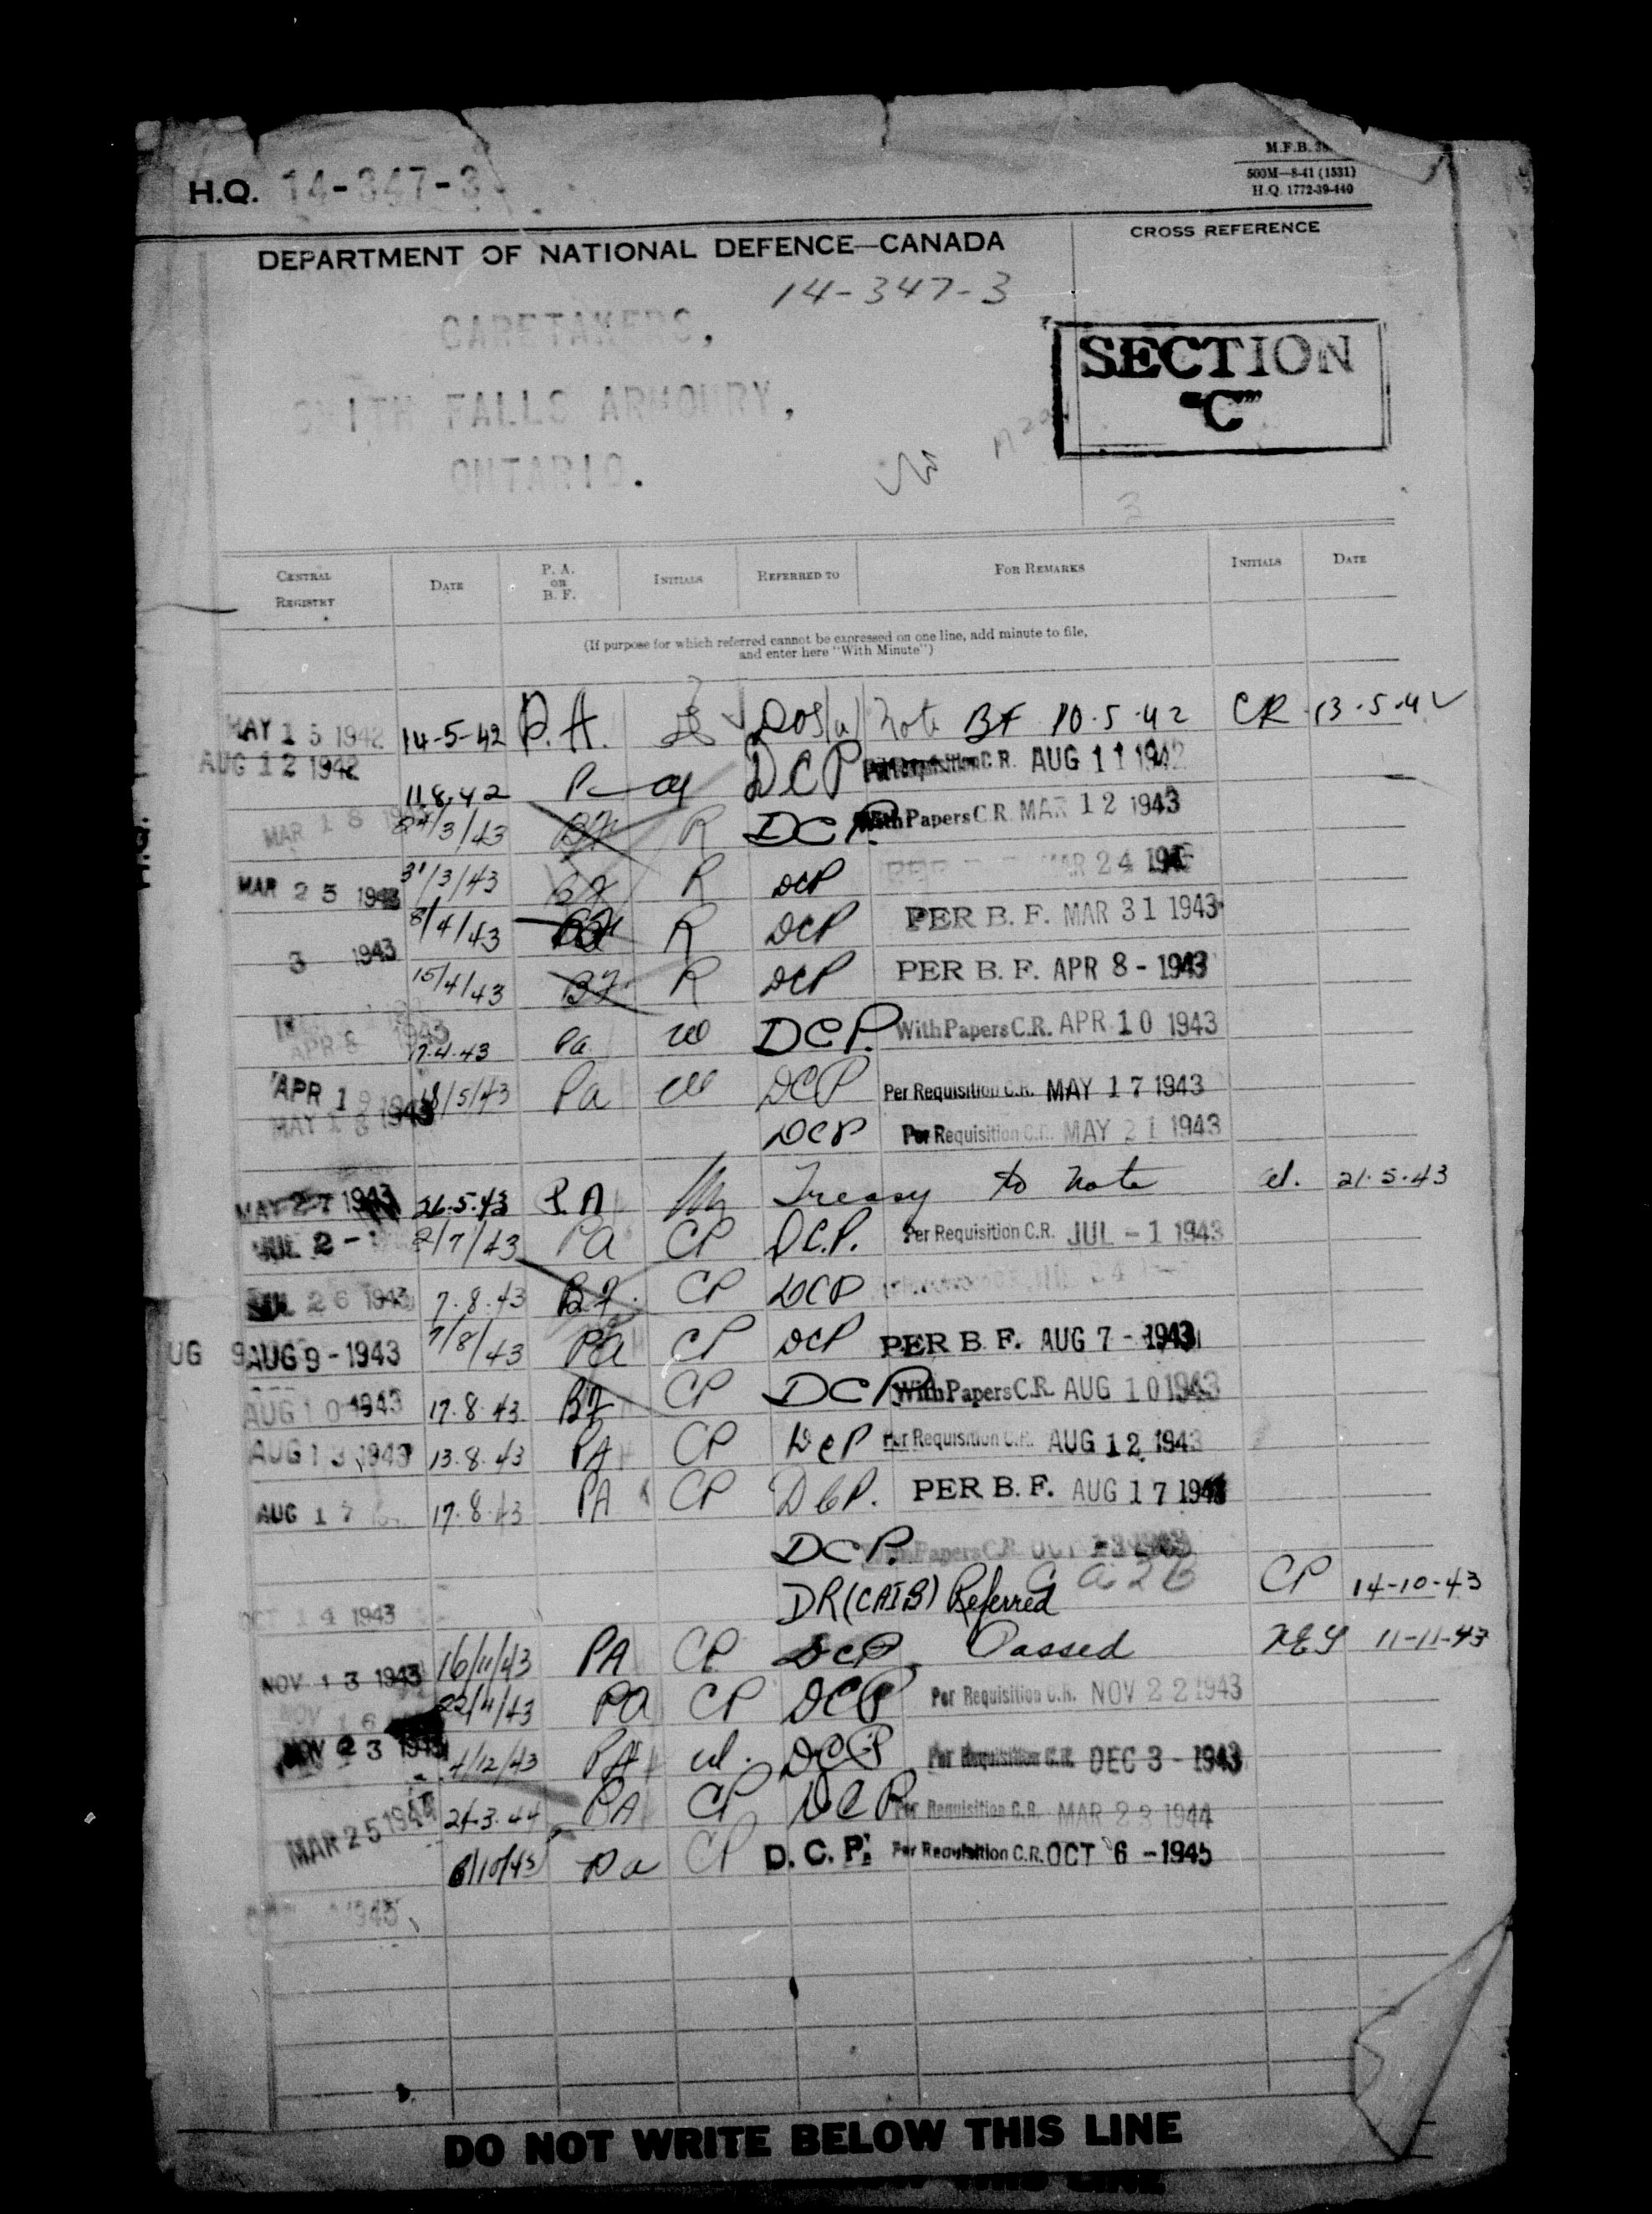 H.Q. 14-347-3
M.F.B.
500M—8-41 (1531)
H.Q. 1772-39-440
DEPARTMENT OF NATIONAL DEFENCE—CANADA
CROSS REFERENCE
14-347-3
CARETAKERS,
SMITH FALLS ARMOURY,
ONTARIO.
SECTION
"C"
CENTRAL REGISTRY DATE P. A. OR B. F. INITIALS REFERRED TO FOR REMARKS INITIALS DATE
(If purpose for which referred cannot be expressed on one line, add minute to file,
and enter here "With Minute")
MAY 15 1942 14-5-42 P.A. Note BF 10.5.42 CR 13.5.42
AUG 12 1942 11.8.42 DCP Per Requisition C.R. AUG 11 1942
MAR 18 /3/43 BF R DCP With Papers C.R. MAR 12 1943
MAR 25 1943 31/3/43 BF R DCP MAR 24 1943
3 1943 8/4/43 R DCP PER B. F. MAR 31 1943
15/4/43 BF R DCP PER B. F. APR 8 - 1943
APR 8 1943 17.4.43 Pa DCP. With Papers C.R. APR 10 1943
APR 19 1943 18/5/43 Pa DCP Per Requisition C.R. MAY 17 1943
MAY 18 1943 DCP Per Requisition C.R. MAY 21 1943
MAY 27 1943 26.5.43 P.A Treasy to note 21.5.43
JUL 2 - 2/7/43 PA CP D.C.P. Per Requisition C.R. JUL - 1 1943
JUL 26 1943 7.8.43 BF. CP DCP
AUG 9 - 1943 7/8/43 PA CP DCP PER B. F. AUG 7 - 1943
AUG 10 1943 17.8.43 BF CP DCP With Papers C.R. AUG 10 1943
AUG 13 1943 13.8.43 PA CP DCP Per Requisition C.R. AUG 12 1943
AUG 17 17.8.43 PA CP DCP. PER B. F. AUG 17 1943
DCP. With Papers C.R. OCT 1943
OCT 14 1943 DR(CAIB) Referred CP 14-10-43
NOV 13 1943 16/11/43 PA CP DCP Passed 11-11-43
NOV 16 22/11/43 PA CP DCP Per Requisition C.R. NOV 22 1943
NOV 23 1943 4/12/43 PA DCP Per Requisition C.R. DEC 3 - 1943
MAR 25 1944 24.3.44 PA CP DCP Per Requisition C.R. MAR 23 1944
6/10/45 Pa CP D.C.P. Per Requisition C.R. OCT 6 - 1945
1945
DO NOT WRITE BELOW THIS LINE